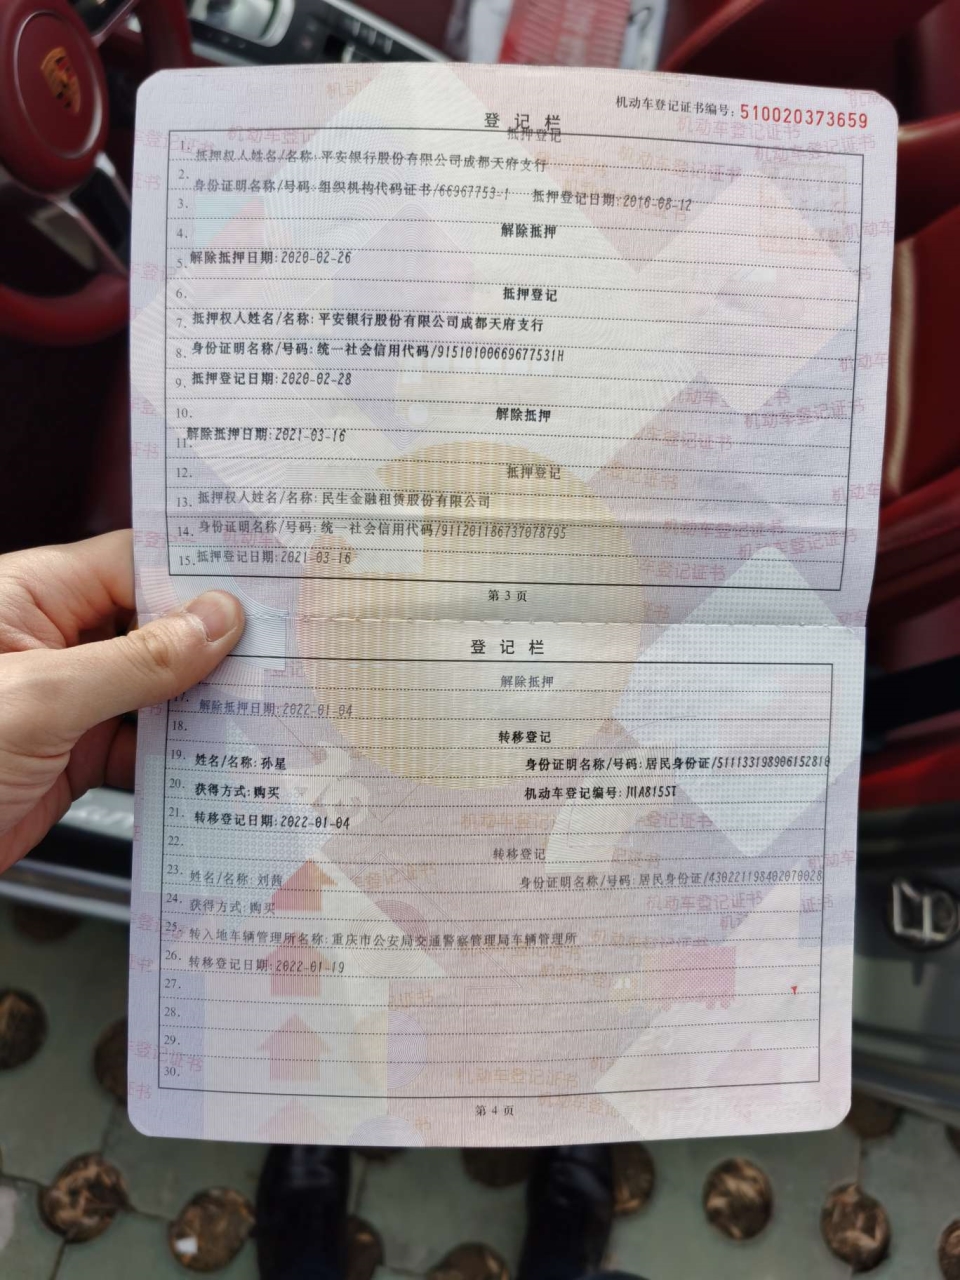 机动车登记证书编号: 510020373659
登记栏
抵押登记
1.
抵押权人姓名/名称:平安银行股份有限公司成都天府支行
2.
身份证明名称/号码:组织机构代码证书/66967753-1 抵押登记日期:2016-08-12
3.
4. 解除抵押
5. 解除抵押日期:2020-02-26
6. 抵押登记
7. 抵押权人姓名/名称:平安银行股份有限公司成都天府支行
8. 身份证明名称/号码:统一社会信用代码/91510100669677531H
9. 抵押登记日期:2020-02-28
10. 解除抵押
11. 解除抵押日期:2021-03-16
12. 抵押登记
13. 抵押权人姓名/名称:民生金融租赁股份有限公司
14. 身份证明名称/号码:统一社会信用代码/911201186737078795
15. 抵押登记日期:2021-03-16
第 3 页
登记栏
解除抵押
17. 解除抵押日期:2022-01-04
18. 转移登记
19. 姓名/名称:孙星 身份证明名称/号码:居民身份证/511133198906152810
20. 获得方式:购买 机动车登记编号:川A815ST
21. 转移登记日期:2022-01-04
22. 转移登记
23. 姓名/名称:刘茜 身份证明名称/号码:居民身份证/430221198402070028
24. 获得方式:购买
25. 转入地车辆管理所名称:重庆市公安局交通警察管理局车辆管理所
26. 转移登记日期:2022-01-19
27.
28.
29.
30.
第 4 页